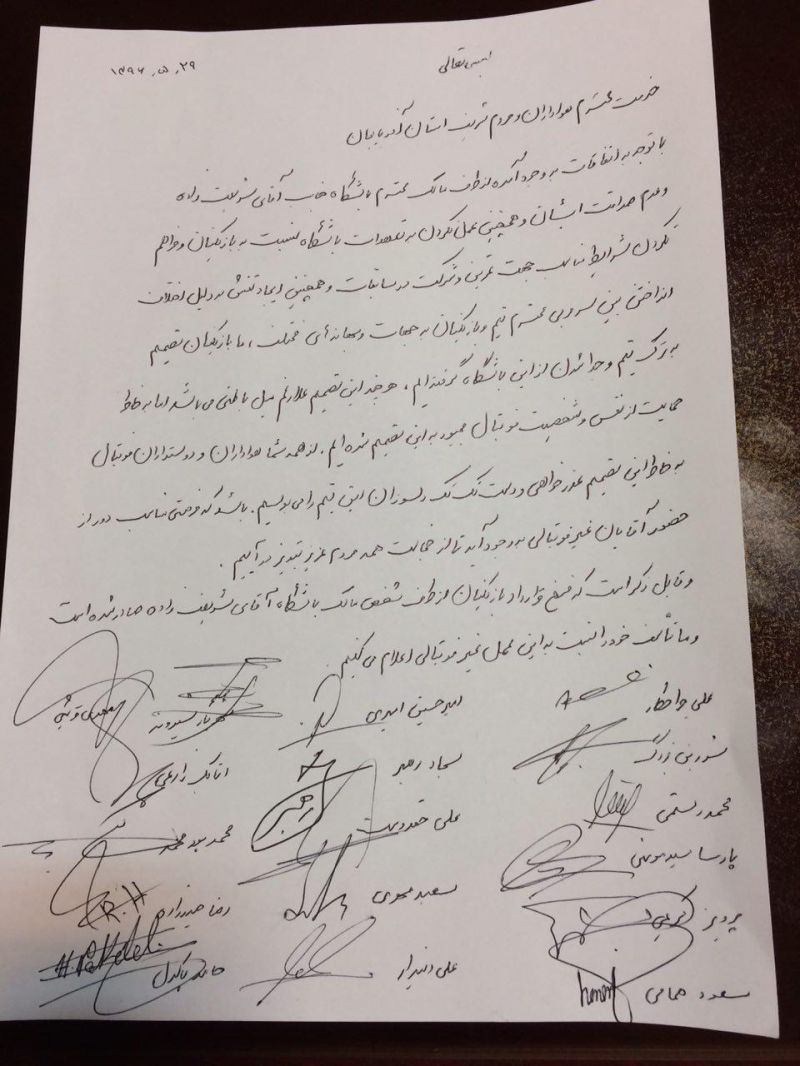 بسمه تعالی
۱۳۹۶٫۵٫۲۹
خدمت محترم هواداران و مردم شریف استان آذربایجان
با توجه به اتفاقات به وجود آمده از طرف مالک محترم باشگاه جناب آقای شریعت زاده
و عدم صداقت ایشان و همچنین عمل نکردن به تعهدات باشگاه نسبت به بازیکنان و فراهم
نکردن شرایط مناسب جهت تمرین و شرکت در مسابقات و همچنین ایجاد تنش به دلیل اختلاف
انداختن بین سرمربی محترم تیم و بازیکنان به جهات و بهانه‌های مختلف ، ما بازیکنان تصمیم
به ترک تیم و جدا شدن از این باشگاه گرفته‌ایم . هر چند این تصمیم علارغم میل باطنی می باشد اما به خاطر
حمایت از نفس و شخصیت فوتبال مجبور به این تصمیم شده ایم . از همه شما هواداران و دوستداران فوتبال
به خاطر این تصمیم عذرخواهی و دست تک تک دلسوزان این تیم را می بوسیم . باشد که فرصتی مناسب دور از
حضور آقایان غیر فوتبالی به وجود آید تا از خجالت همه مردم عزیز تبریز در آییم .
و قابل ذکر است که فسخ قرارداد بازیکنان از طرف شخص مالک باشگاه آقای شریعت زاده صادر شده است
و ما تأسف خود را نسبت به این عمل غیر فوتبالی اعلام می کنیم .
علی امیرحسین امیری مهدی قریشی
بزرگ سجاد رهبر اتابک زارعی
محمد رستمی علی محمد
پارسا سعید رضا حیدرزاده R.H
پرویز کریمی علی دیندار پاکدل H.Pakdel
مسعود همامی